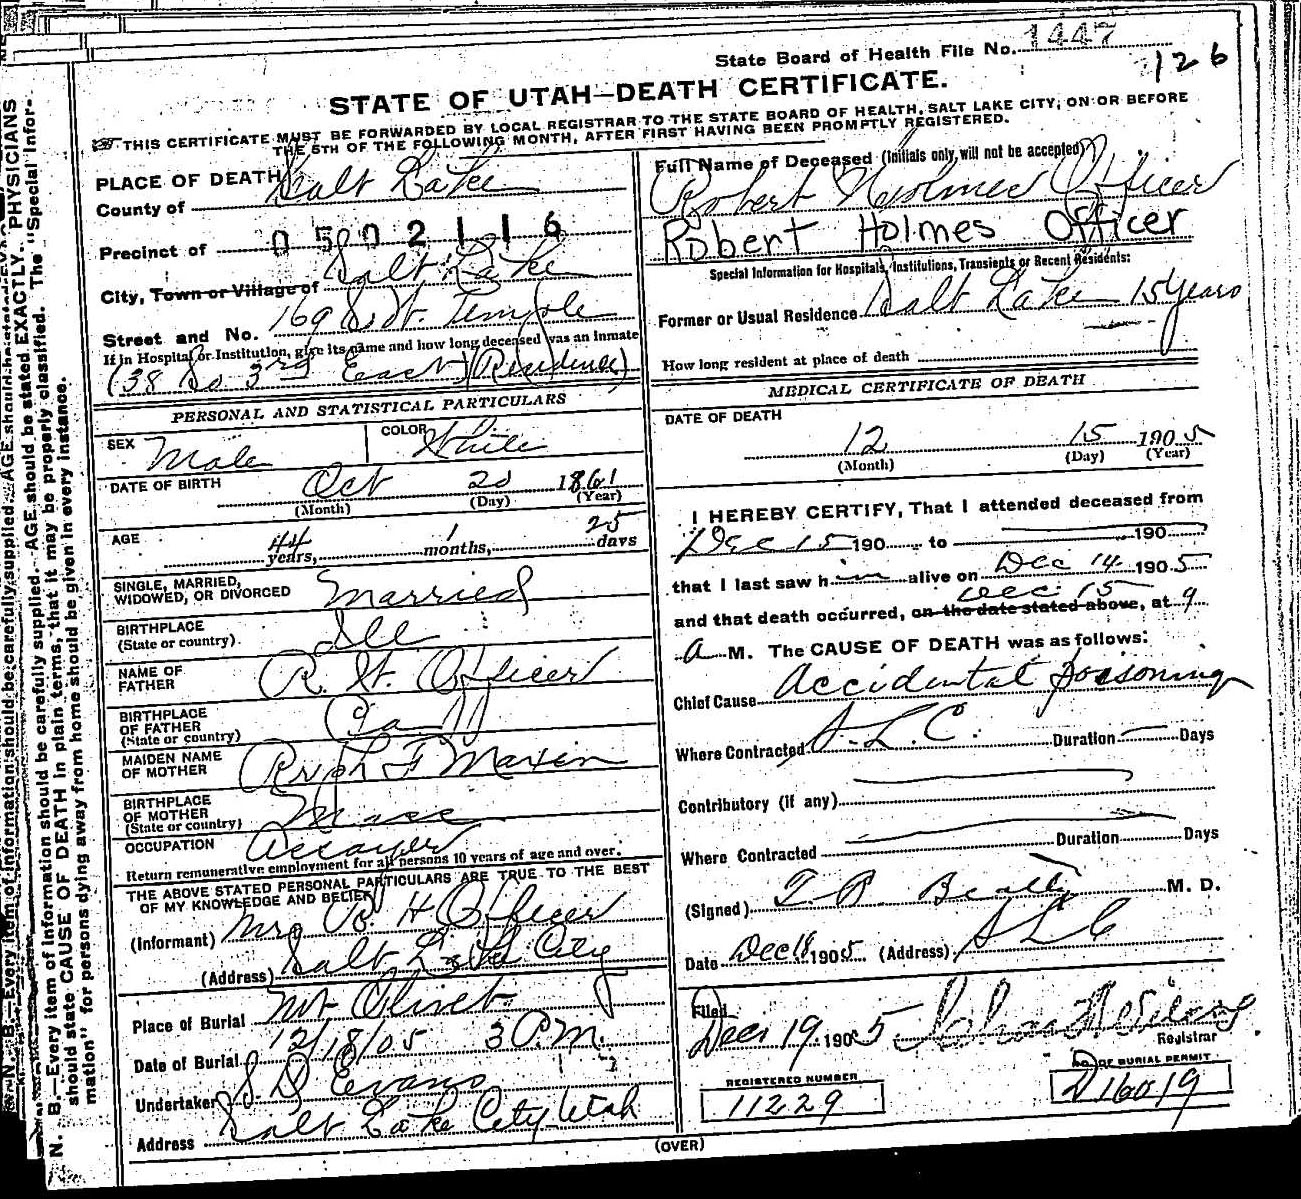 State Board of Health File No. 1447
126
STATE OF UTAH—DEATH CERTIFICATE.
THIS CERTIFICATE MUST BE FORWARDED BY LOCAL REGISTRAR TO THE STATE BOARD OF HEALTH, SALT LAKE CITY, ON OR BEFORE
THE 5TH OF THE FOLLOWING MONTH, AFTER FIRST HAVING BEEN PROMPTLY REGISTERED.
PLACE OF DEATH
County of Salt Lake
Precinct of 0502116
City, Town or Village of Salt Lake
Street and No. 169 S. W. Temple
If in Hospital or Institution, give its name and how long deceased was an inmate
(38 So 3rd East) (Residence)
PERSONAL AND STATISTICAL PARTICULARS
SEX Male COLOR White
DATE OF BIRTH Oct 20 1861
(Month) (Day) (Year)
AGE 44 years, 1 months, 25 days
SINGLE, MARRIED, WIDOWED, OR DIVORCED Married
BIRTHPLACE (State or country) Ill
NAME OF FATHER R. W. Officer
BIRTHPLACE OF FATHER (State or country)
MAIDEN NAME OF MOTHER F
BIRTHPLACE OF MOTHER (State or country) Mass
OCCUPATION Assayer
Return remunerative employment for all persons 10 years of age and over.
THE ABOVE STATED PERSONAL PARTICULARS ARE TRUE TO THE BEST
OF MY KNOWLEDGE AND BELIEF
(Informant) Mrs R. H. Officer
(Address) Salt Lake City
Place of Burial Mt Olivet
Date of Burial 12/18/05 3 P.M.
Undertaker S. D. Evans
Address Salt Lake City Utah
Full Name of Deceased (Initials only, will not be accepted)
Robert Holmes Officer
Robert Holmes Officer
Special Information for Hospitals, Institutions, Transients or Recent Residents:
Former or Usual Residence Salt Lake 15 years
How long resident at place of death
MEDICAL CERTIFICATE OF DEATH
DATE OF DEATH
12 15 1905
(Month) (Day) (Year)
I HEREBY CERTIFY, That I attended deceased from
Dec 15 190 to 190
that I last saw him alive on Dec 14 1905
Dec. 15
and that death occurred, on the date stated above, at 9
a M. The CAUSE OF DEATH was as follows:
Chief Cause Accidental poisoning
Where Contracted S.L.C. Duration Days
Contributory (if any)
Where Contracted Duration Days
(Signed) T B Beatty M. D.
Date Dec 18 1905 (Address) SLC
Filed
Dec 19 1905
Registrar
REGISTERED NUMBER
11229
No. OF BURIAL PERMIT
D16019
(OVER)
N. B.—Every item of information should be carefully supplied. AGE should be stated EXACTLY. PHYSICIANS
should state CAUSE OF DEATH in plain terms, that it may be properly classified. The "Special Infor-
mation" for persons dying away from home should be given in every instance.